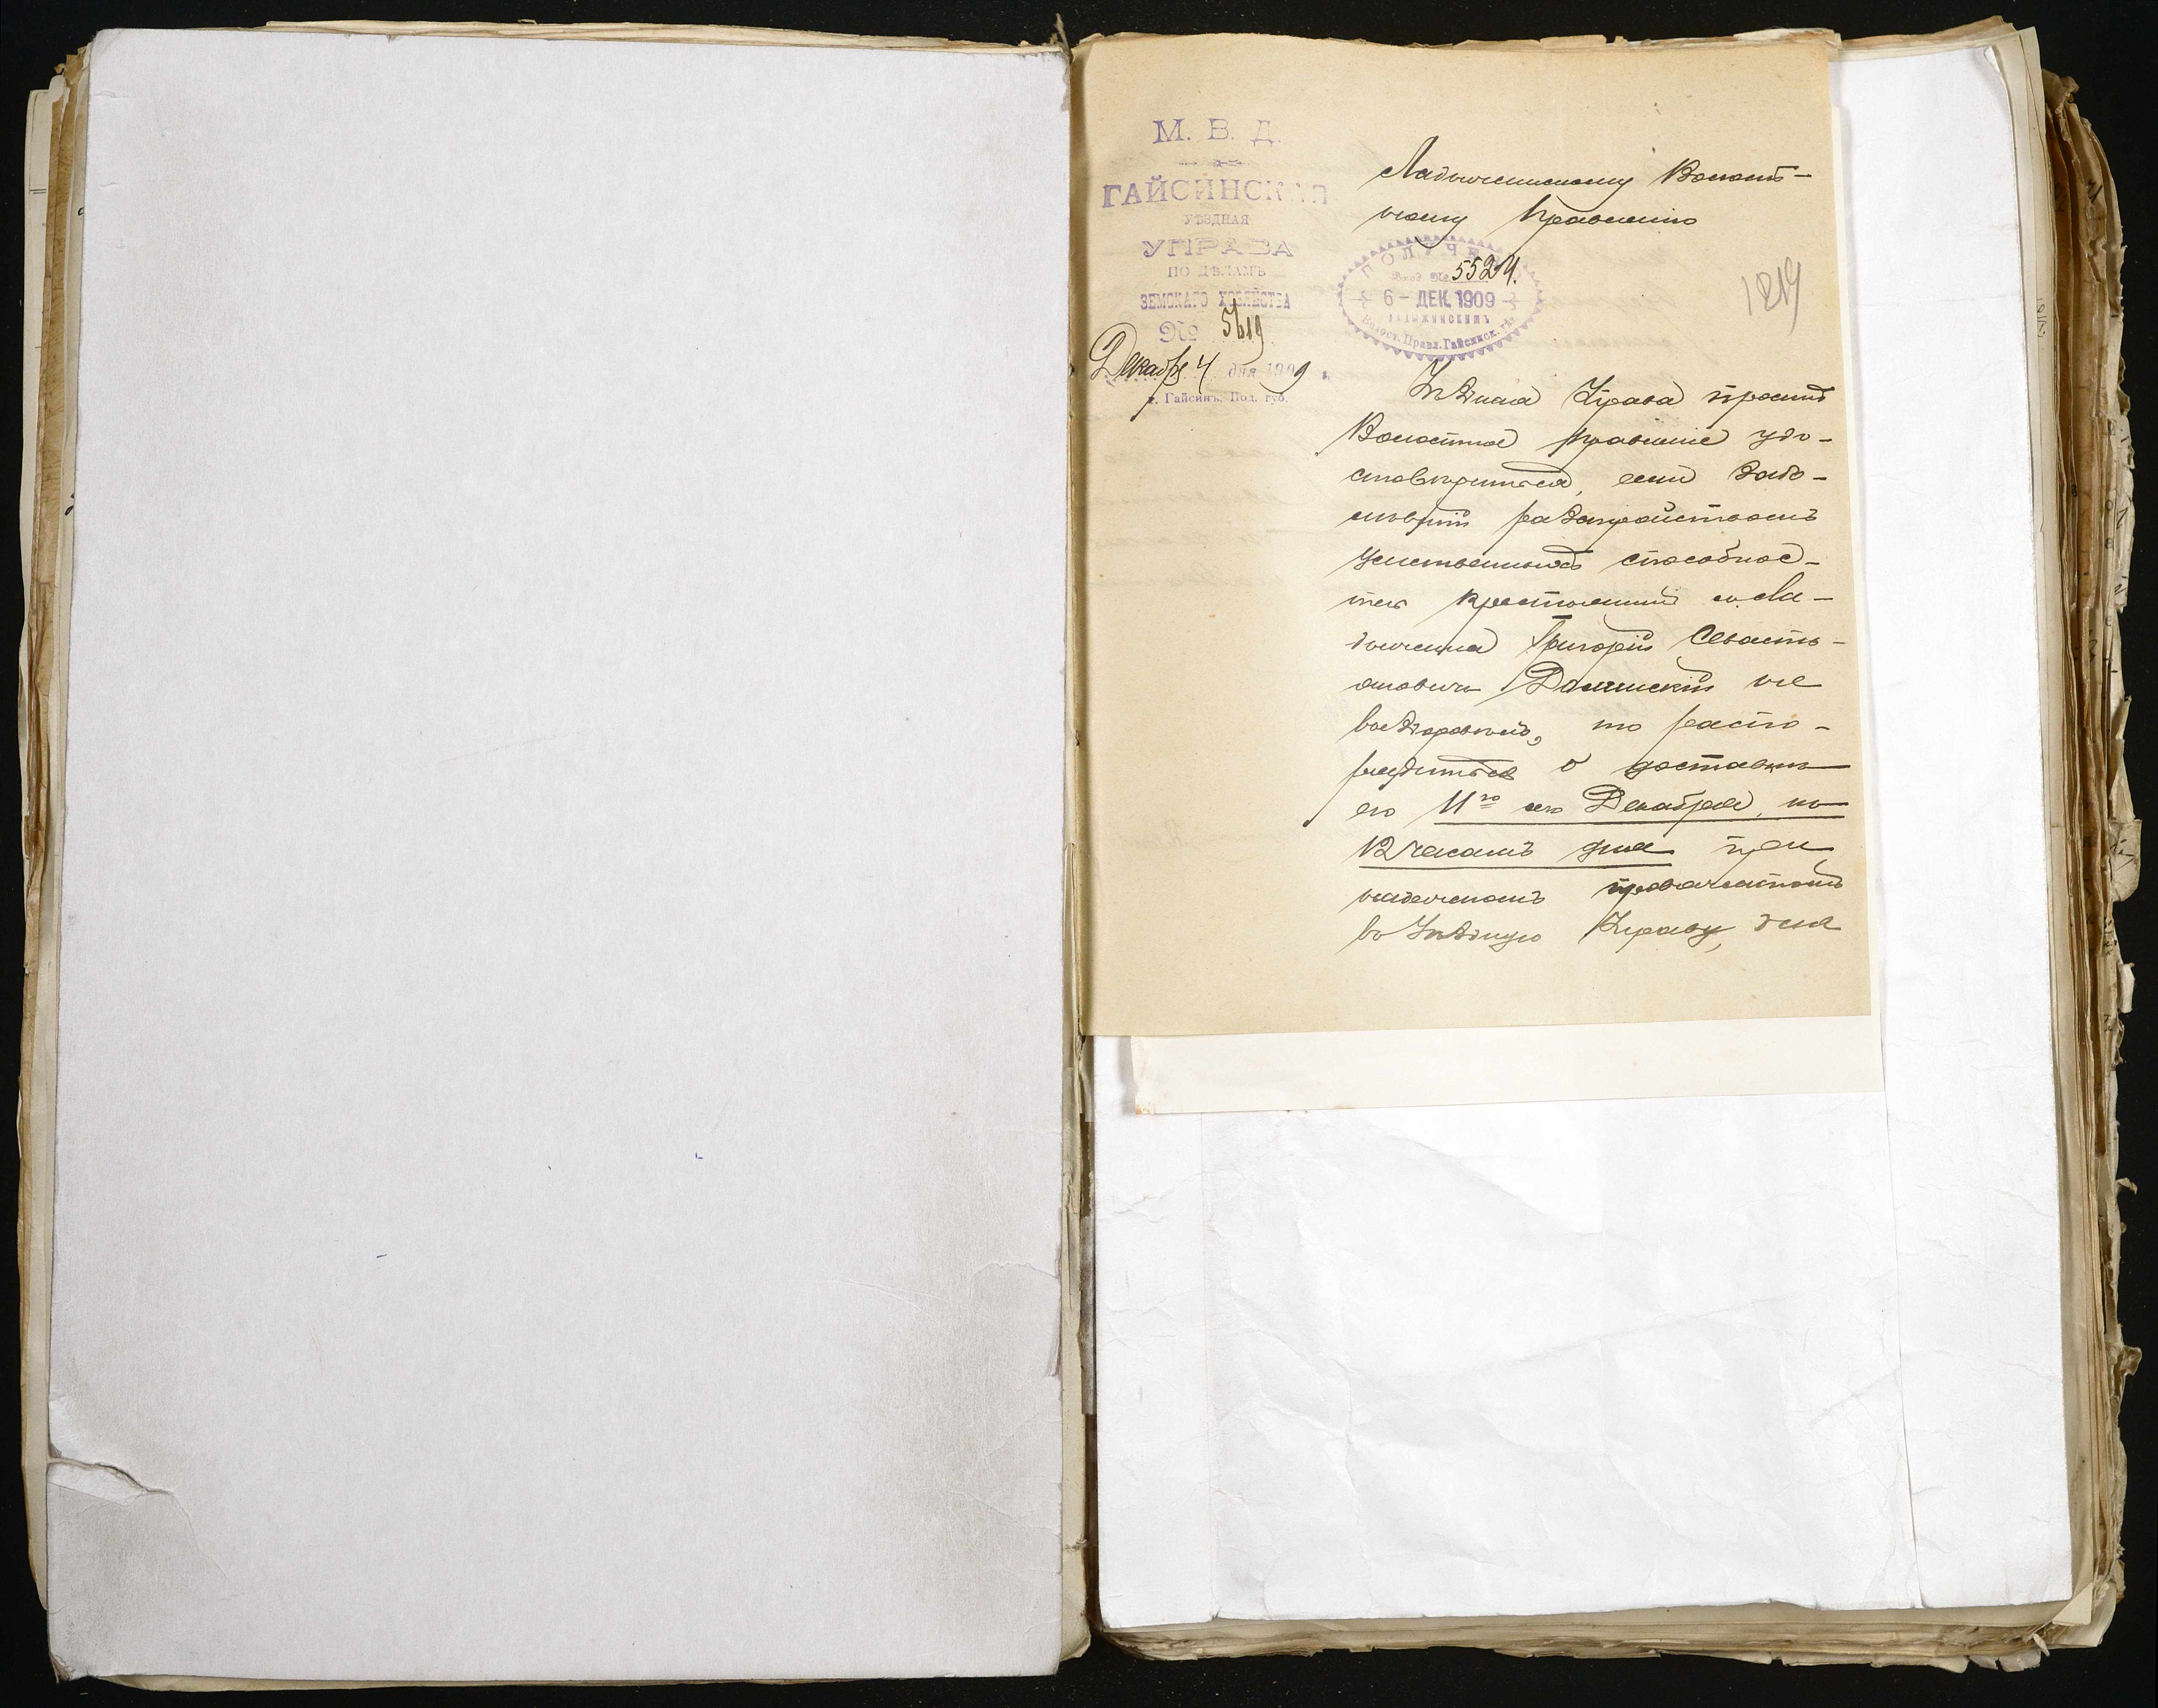 М. В. Д.
ГАЙСИНСКАЯ
УѢЗДНАЯ
УПРАВА
ПО ДѢЛАМЪ
ЗЕМСКАГО ХОЗЯЙСТВА
№ 5619
Декабря 4 дня 1909 г.
г. Гайсинъ, Под. губ.
Ладыжинскому Волост-
ному Правленію
ПОЛУЧЕНО
Вход. № 5524.
6 - ДЕК. 1909
ЛАДЫЖИНСКИМЪ
Волост. Правл. Гайсинск. у.
1219
Уѣздная Управа проситъ
Волостное Правленіе удо-
стовѣриться, если забо-
лѣвшій разстройствомъ
умственныхъ способнос-
тей крестьянинъ м. Ла-
дыжина Григорій Севасть-
яновичъ Долинскій не
выздоровѣлъ, то распо-
рядиться о доставкѣ
его 11го сего Декабря, къ
12 часамъ дня при
надежномъ провожатомъ
въ Уѣздную Управу, для